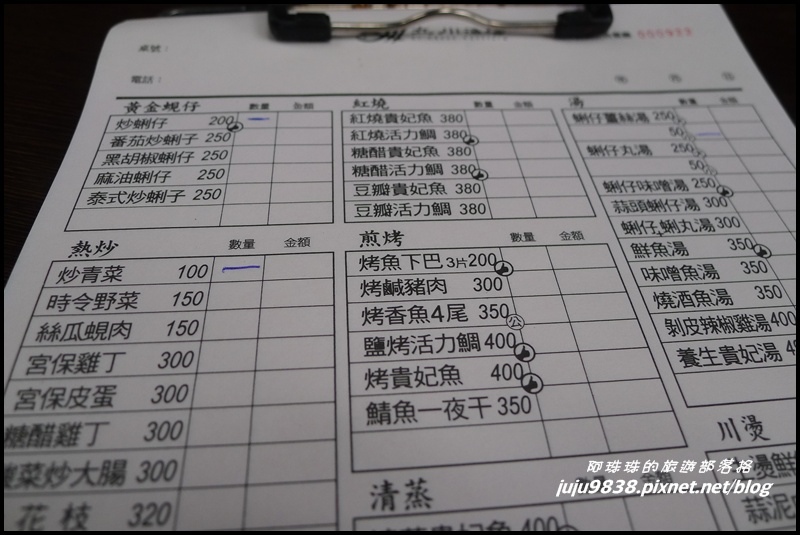 桌號：
000922
電話：
黃金蜆仔 數量 金額
炒蜊仔 200
番茄炒蜊子 250
黑胡椒蜊仔 250
麻油蜊仔 250
泰式炒蜊子 250
紅燒 數量 金額
紅燒貴妃魚 380
紅燒活力鯛 380
糖醋貴妃魚 380
糖醋活力鯛 380
豆瓣貴妃魚 380
豆瓣活力鯛 380
湯 數量 金額
蜊仔薑絲湯 250
50
蜊仔丸湯 250
50
蜊仔味噌湯 250
蒜頭蜊仔湯 300
蜊仔,蜊丸湯 300
鮮魚湯 350
味噌魚湯 350
燒酒魚湯 350
剝皮辣椒雞湯 400
養生貴妃湯
熱炒 數量 金額
炒青菜 100
時令野菜 150
絲瓜蜆肉 150
宮保雞丁 300
宮保皮蛋 300
糖醋雞丁 300
酸菜炒大腸 300
花枝 320
煎烤 數量 金額
烤魚下巴 3片 200
烤鹹豬肉 300
烤香魚4尾 350 公
鹽烤活力鯛 400
烤貴妃魚 400
鯖魚一夜干 350
清蒸
貴妃魚 400
川燙
燙鮮
蒜泥
呀珠珠的旅遊部落格
juju9838.pixnet.net/blog